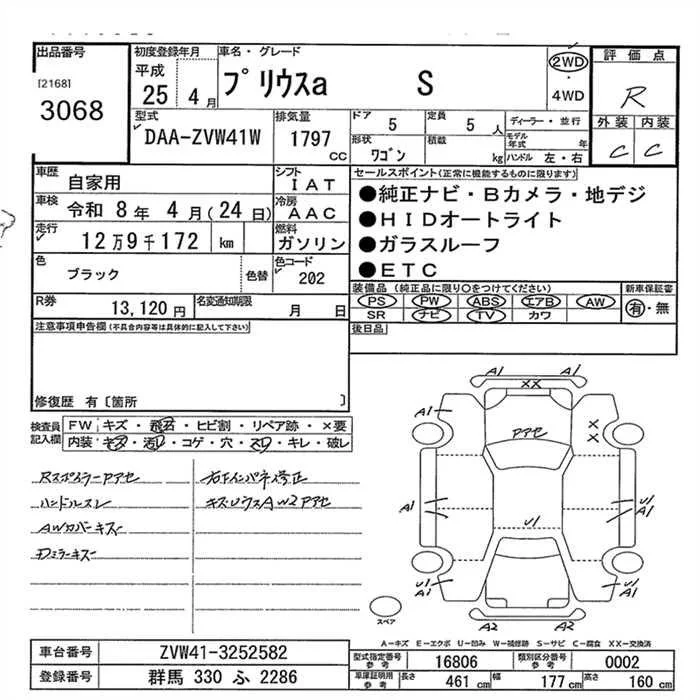 出品番号 初度登録年月 車名・グレード 評価点
[2168] 平成 2WD
3068 25 4月 プリウスα S ・4WD R
型式 排気量 ドア 5 定員 5人 ディーラー・並行 外装 内装
DAA-ZVW41W 1797 CC 形状 ワゴン 積載 kg モデル年式 年 ハンドル 左・右 C C
車歴 自家用 シフト IAT セールスポイント(正常に機能するものに限ります)
車検 令和 8年 4月(24日) 冷房 AAC ●純正ナビ・Bカメラ・地デジ
走行 12万9千172 km 燃料 ガソリン ●HIDオートライト
●ガラスルーフ
色 ブラック 色替 色コード 202 ●ETC
装備品(純正品に限り○をつけてください) 新車保証書
R券 13,120円 名変通知期限 月 日 PS PW ABS エアB AW 有・無
SR ナビ TV カワ
注意事項申告欄(不具合内容等は具体的に記入して下さい) 後日品
修復歴 有〔箇所 〕
検査員記入欄 FW キズ・飛石・ヒビ割・リペア跡・×要
内装 キズ・汚レ・コゲ・穴・スレ・キレ・破レ
RスポイラーPアセ
ハンドルスレ キズUウスAW2Pアセ
AWカバーキズ
Dミラーキズ
A1 A1
XX
A1
PアセX
X
A1 U1
A1
U1
U1 A1
U1 A1
A2 A2
スペア
A－キズ E－エクボ U－凹み W－補修跡 S－サビ C－腐食 XX－交換済
車台番号 ZVW41-3252582 型式指定番号 参考 16806 類別区分番号 参考 0002
登録番号 群馬 330 ふ 2286 車庫証明用 参考 長さ 461 cm 幅 177 cm 高さ 160 cm